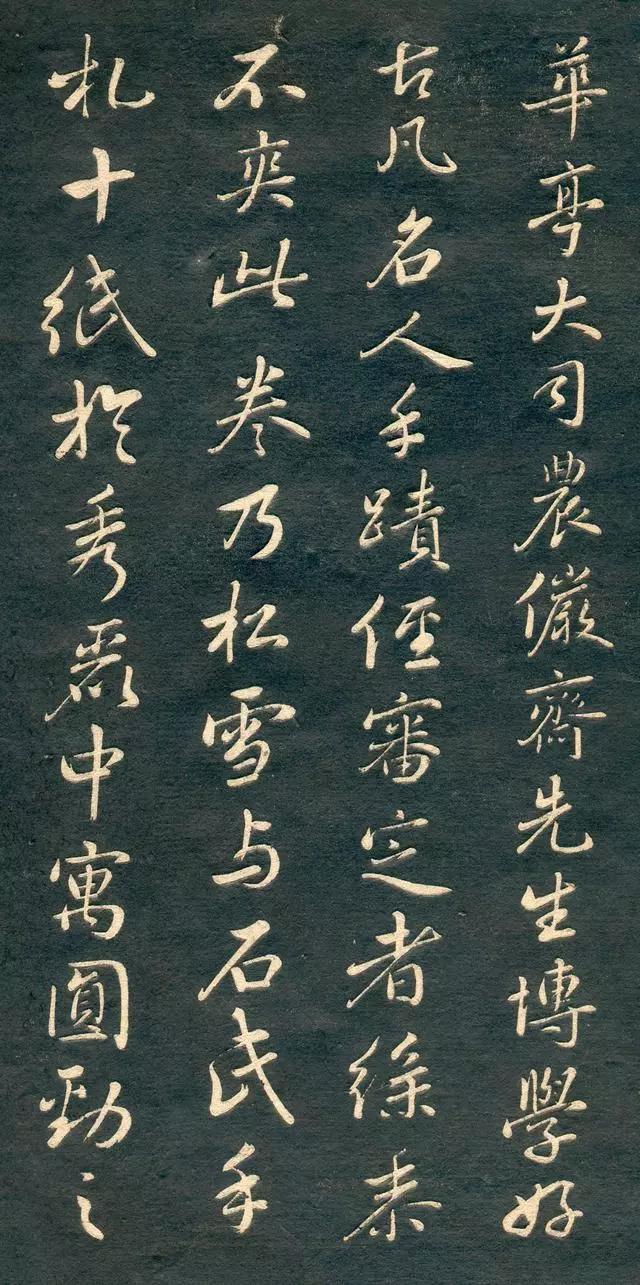 華亭大司農儼齋先生博學好
古凡名人手蹟俓審定者絲黍
不爽此卷乃松雪与石民手
札十紙於秀麗中寓圓勁之